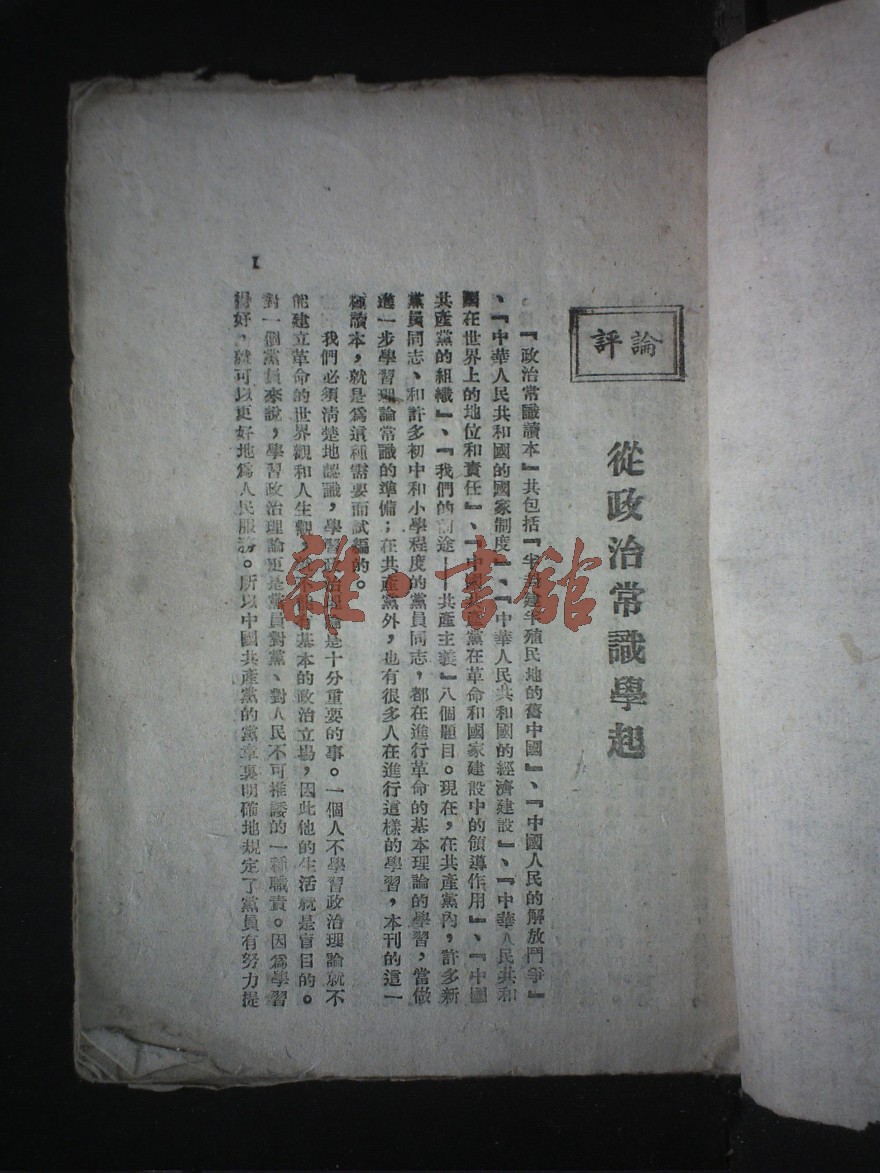 評論
從政治常識學起
『政治常識讀本』共包括『半封建半殖民地的舊中國』、『中國人民的解放鬥爭』
、『中華人民共和國的國家制度』、『中華人民共和國的經濟建設』、『中華人民共和
國在世界上的地位和責任』、『中國共產黨在革命和國家建設中的領導作用』、『中國
共產黨的組織』、『我們的前途—共產主義』八個題目。現在，在共產黨內，許多新
黨員同志、和許多初中和小學程度的黨員同志，都在進行革命的基本理論的學習，當做
進一步學習理論常識的準備；在共產黨外，也有很多人在進行這樣的學習，本刊的這一
種讀本，就是爲這種需要而試編的。
我們必須清楚地認識，學習政治理論是十分重要的事。一個人不學習政治理論就不
能建立革命的世界觀和人生觀，基本的政治立場，因此他的生活就是盲目的。
對一個黨員來說，學習政治理論更是黨員對黨、對人民不可推諉的一種職責。因爲學習
得好，就可以更好地爲人民服務。所以中國共產黨的黨章裏明確地規定了黨員有努力提
1
雜·書館